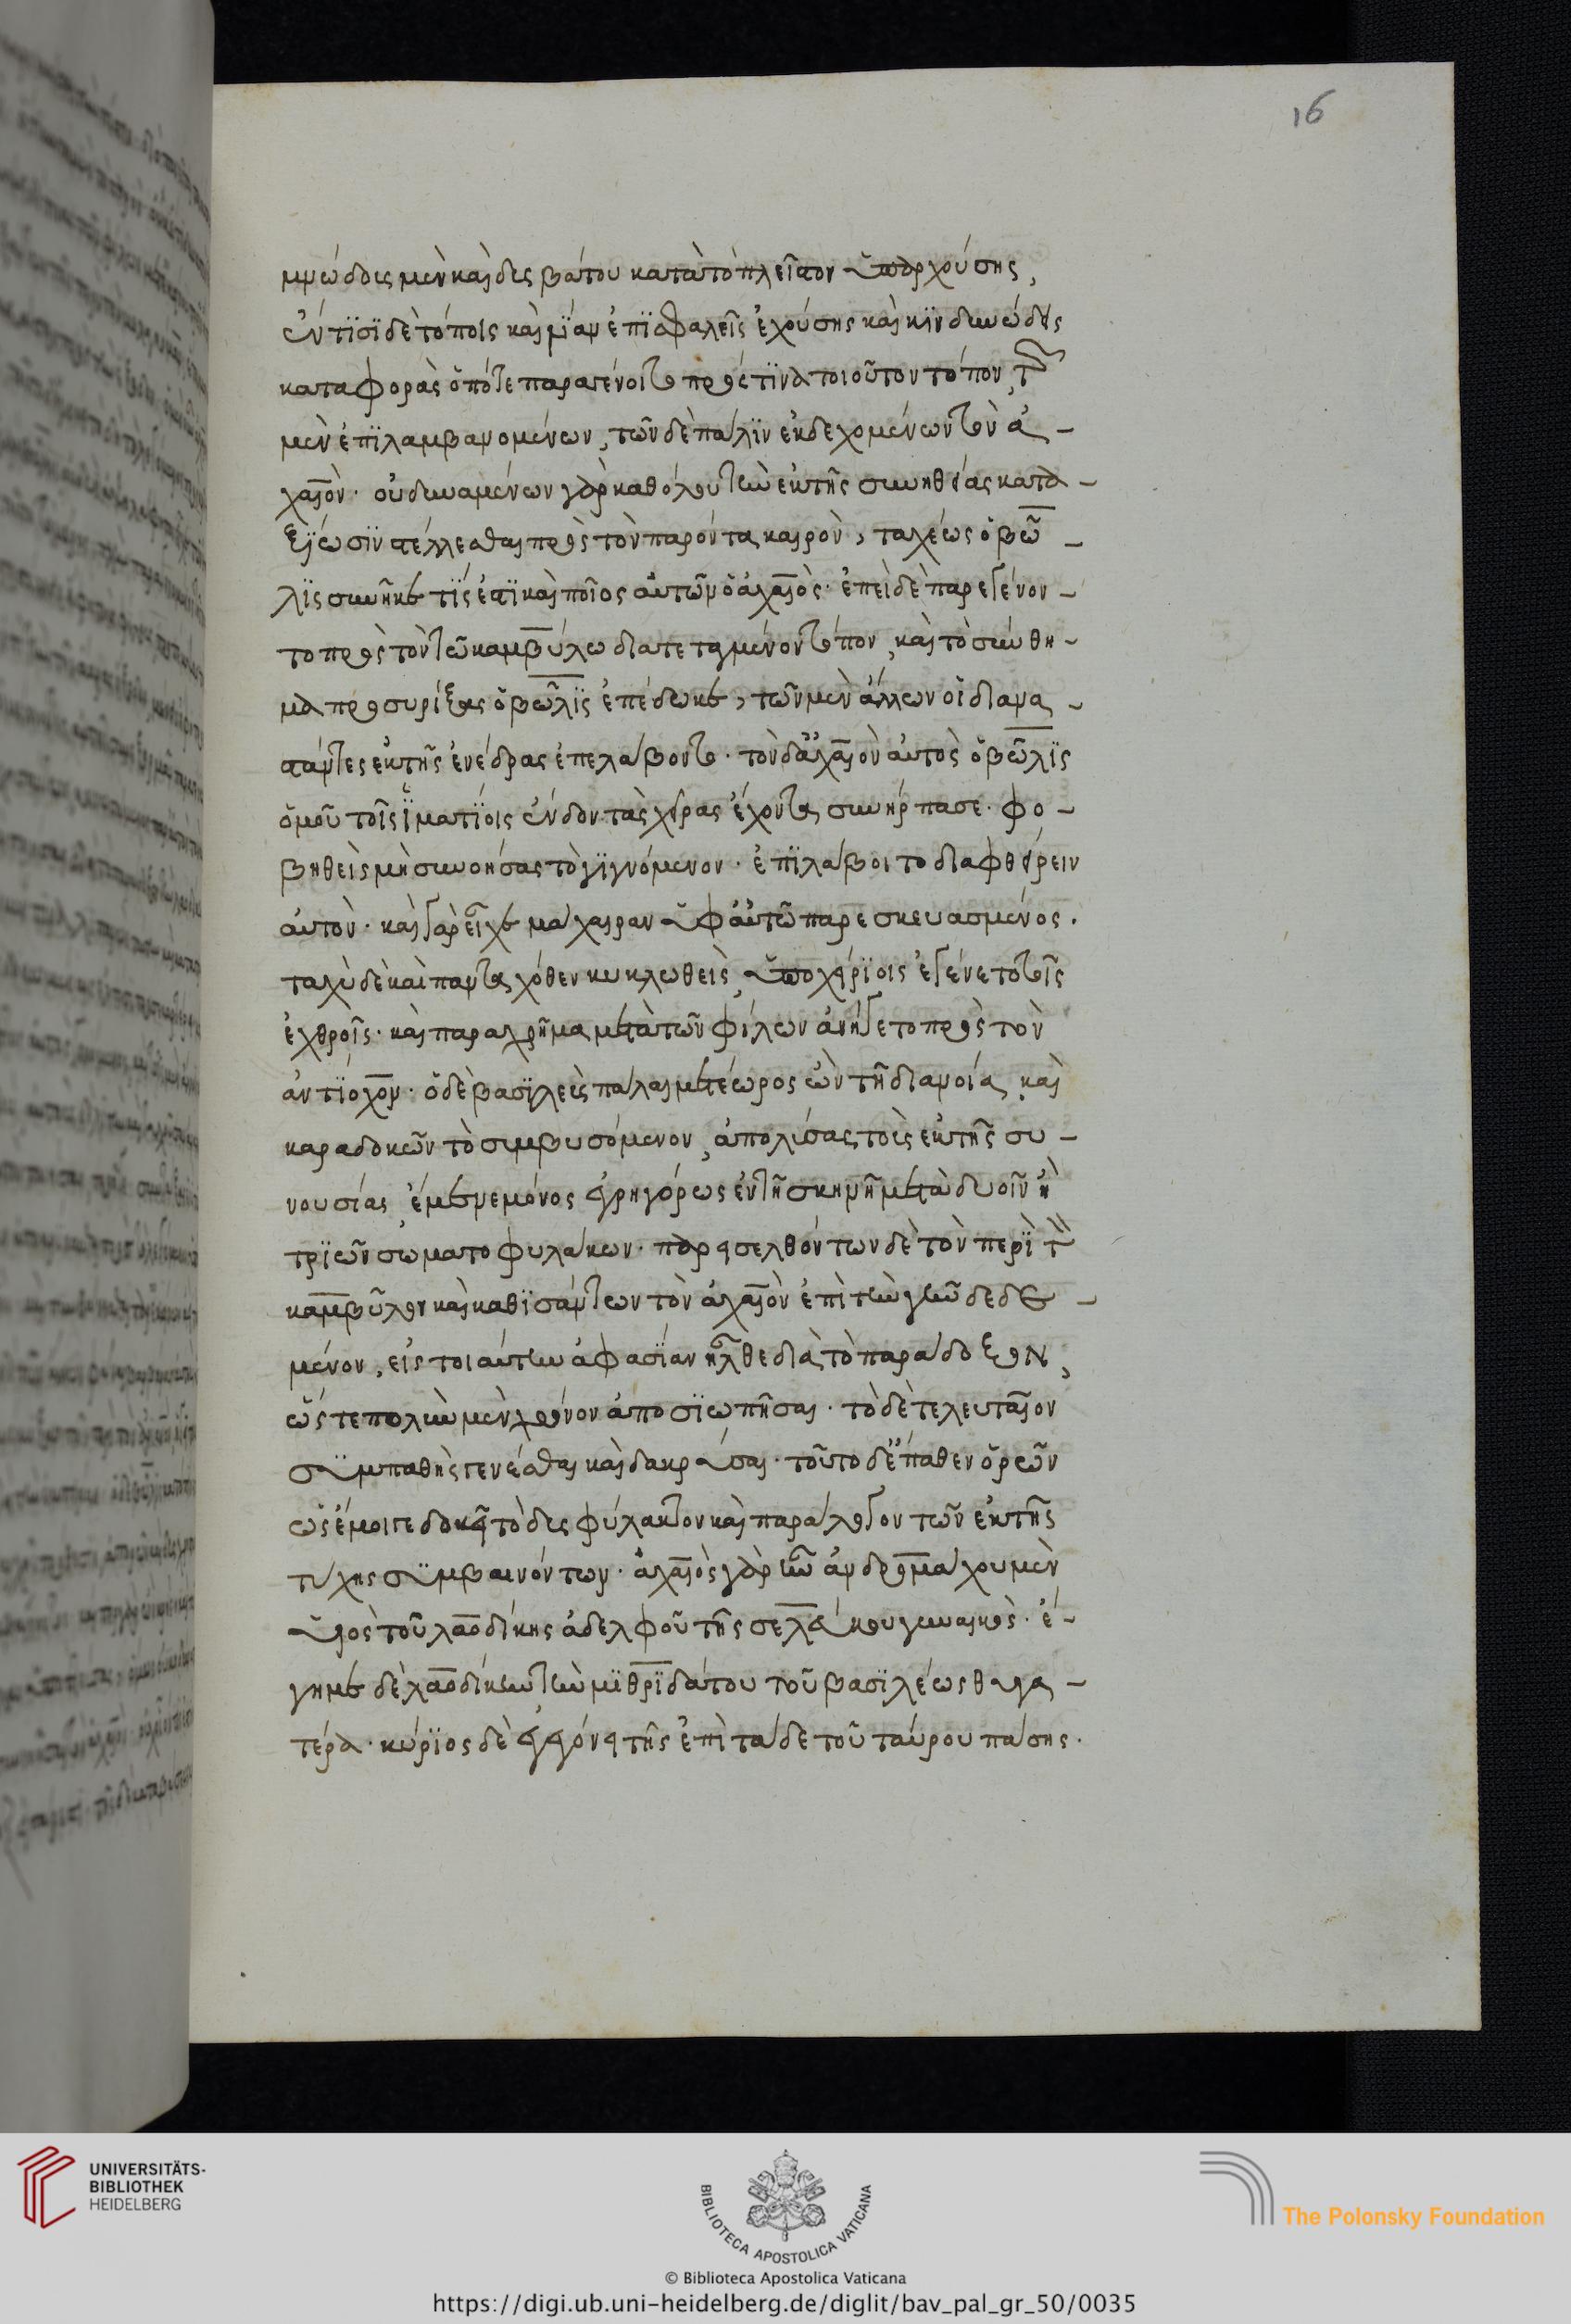 16
μνώδους μὲν καὶ δυσβάτου κατὰ τὸ πλεῖστον ὑπαρχούσης,
ἐν τισὶ δὲ τόποις καὶ μίαν ἐπισφαλεῖς ἐχούσης καὶ κινδυνώδεις
καταφορὰς ὁπότε παραγένοιτο πρός τινα τοιοῦτον τόπον, τῶν
μὲν ἐπιλαμβανομένων, τῶν δὲ πάλιν ἐκδεχομένων τὸν ἀ-
χαιὸν· οὐ δυναμένων γὰρ καθόλου τὴν ἐκ τῆς συνηθείας κατα-
ξίωσιν στέλλεσθαι πρὸς τὸν παρόντα καιρὸν, ταχέως ὁ βῶ-
λις συνῆκε τίς ἐστι καὶ ποῖος αὐτῶν ὁ ἀχαιὸς· ἐπεὶ δὲ παρεγένον-
το πρὸς τὸν τῶ καμβύλω διατεταγμένον τόπον, καὶ τὸ σύνθη-
μα προσυρίξας ὁ βῶλις ἐπέδωκε, τῶν μὲν ἄλλων οἱ διανα-
στάντες ἐκ τῆς ἐνέδρας ἐπελάβοντο· τὸν δ' ἀχαιὸν αὐτὸς ὁ βῶλις
ὁμοῦ τοῖς ἱματίοις ἔνδον τὰς χεῖρας ἔχοντα συνήρπασε· φο-
βηθεὶς μὴ συνοήσας τὸ γιγνόμενον· ἐπιλάβοιτο διαφθείρειν
αὐτὸν· καὶ γὰρ εἶχε μάχαιραν ὑφ' αὑτῶ παρεσκευασμένος.
ταχὺ δὲ καὶ πανταχόθεν κυκλωθεὶς, ὑποχείριοις ἐγένετο τοῖς
ἐχθροῖς· καὶ παραχρῆμα μετὰ τῶν φίλων ἀνήγετο πρὸς τὸν
ἀντίοχον· ὁ δὲ βασιλεὺς πάλαι μετέωρος ὢν τῆ διανοία, καὶ
καραδοκῶν τὸ συμβησόμενον, ἀπολύσας τοὺς ἐκ τῆς συ-
νουσίας, ἔμενε μόνος ἐγρηγόρως ἐν τῆ σκηνῆ μετὰ δυοῖν ἢ
τριῶν σωματοφυλάκων· παρεισελθόντων δὲ τὸν περὶ τὸν
καμβύλον καὶ καθισάντων τὸν ἀχαιὸν ἐπὶ τὴν γῆν δεδε-
μένον, εἰς τοιαύτην ἀφασίαν ἦλθε διὰ τὸ παράδοξον,
ὥστε πολὺν μὲν χρόνον ἀποσιωπῆσαι· τὸ δὲ τελευταῖον
συμπαθὴς γενέσθαι καὶ δακρύσαι· τοῦτο δ' ἔπαθεν ὁρῶν
ὡς ἔμοιγε δοκεῖ τὸ δυσφύλακτον καὶ παράλογον τῶν ἐκ τῆς
τύχης συμβαινόντων· ἀχαιὸς γὰρ ἦν ἀνδρομάχου μὲν
υἱὸς τοῦ λαοδίκης ἀδελφοῦ τῆς σελεύκου γυναικὸς· ἔ-
γημε δὲ λαοδίκην τὴν μιθριδάτου τοῦ βασιλέως θυγα-
τέρα· κύριος δὲ ἐγεγόνει τῆς ἐπὶ τάδε τοῦ ταύρου πάσης.
UNIVERSITÄTS-
BIBLIOTHEK
HEIDELBERG
BIBLIOTECA APOSTOLICA VATICANA
The Polonsky Foundation
© Biblioteca Apostolica Vaticana
https://digi.ub.uni-heidelberg.de/diglit/bav_pal_gr_50/0035